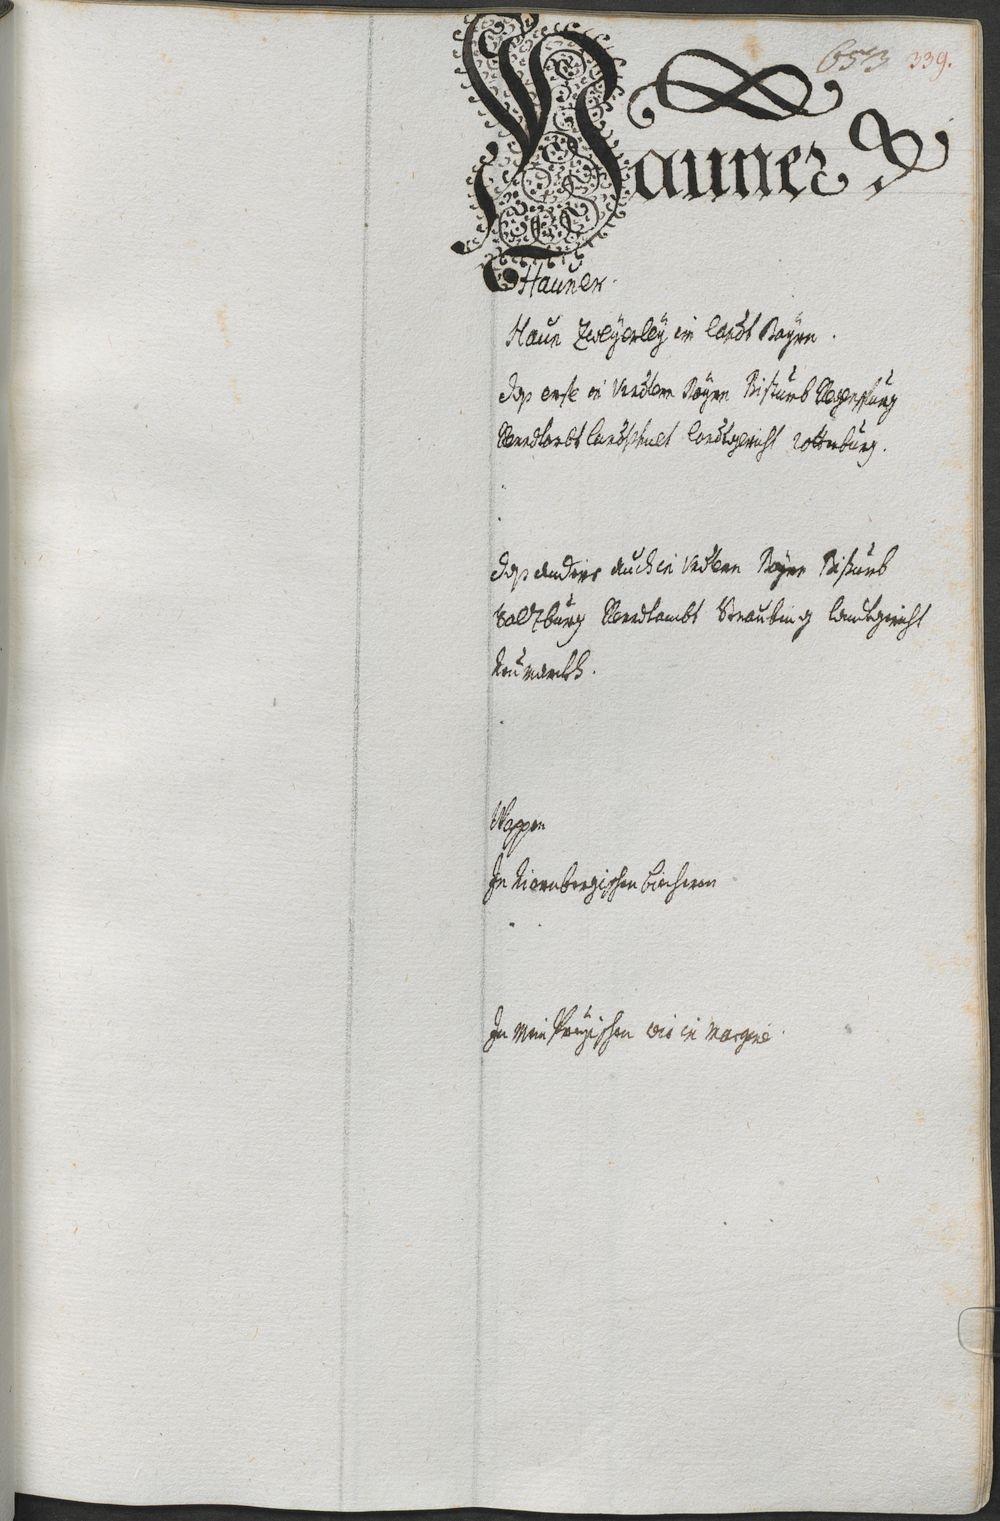 653 339.
Hauner
Hauner.
Haun Zweyerley in landt Bayrn.
daß erste in Undtern Bayrn Bistumb Regenspurg
Renndtambt landtshuet landtgericht rottenburg.
daß anders auch in Undtern Bayrn Bistumb
Saltzburg Renndtambt Straubing landtgericht
Neumarckh.
Wappen
In Niernbergischen biechern
In mein Preysischen wie in margine